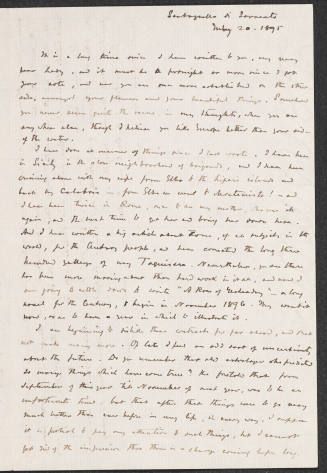 Santagnello di Sorrento
May 20 - 1895
It is a long time since I have written to you, my very
dear lady, and it must be a fortnight or more since I got
your note, and now you are once more established on the other
side, amongst your flowers and your beautiful things. Somehow
you never seem quite the same, in my thoughts, when you are
any where else, though I believe you like Europe better than your side
of the water.
I have done all manner of things since I last wrote. I have been
in Sicily in the close neighbourhood of brigands, and I have been
cruising alone with my cape from Elba to the lipari islands and
back by Calabria - from Elba we went to Montecristo! - and
I have been twice in Rome, once to see my mother, who was ill
again, and the next time to get her and bring her down here.
And I have written a big article about Rome, of all subjects in the
world, for the Century people, and have corrected the long three
hundred galleys of my Taquisara. Nevertheless, you see there
has been more moving about than hard work in it all, and now I
am going to settle down to write "A Rose of Yesterday" - a long
novel for the Century, to begin in November 1896. They want it
now, so as to have a year in which to illustrate it.
I am beginning to dislike these contracts far ahead, and shall
not make many more. Of late I feel an odd sort of uncertainty
about the future. Do you remember that old astrologer who predicted
so many things which have come true? He foretold that from
September of this year till November of next year, was to be an
important time, but that after that things were to go many
much better than ever before in my life, in every way. I suppose
it is foolish to pay any attention to such things, but I cannot
get rid of the impression that there is a change coming before long.